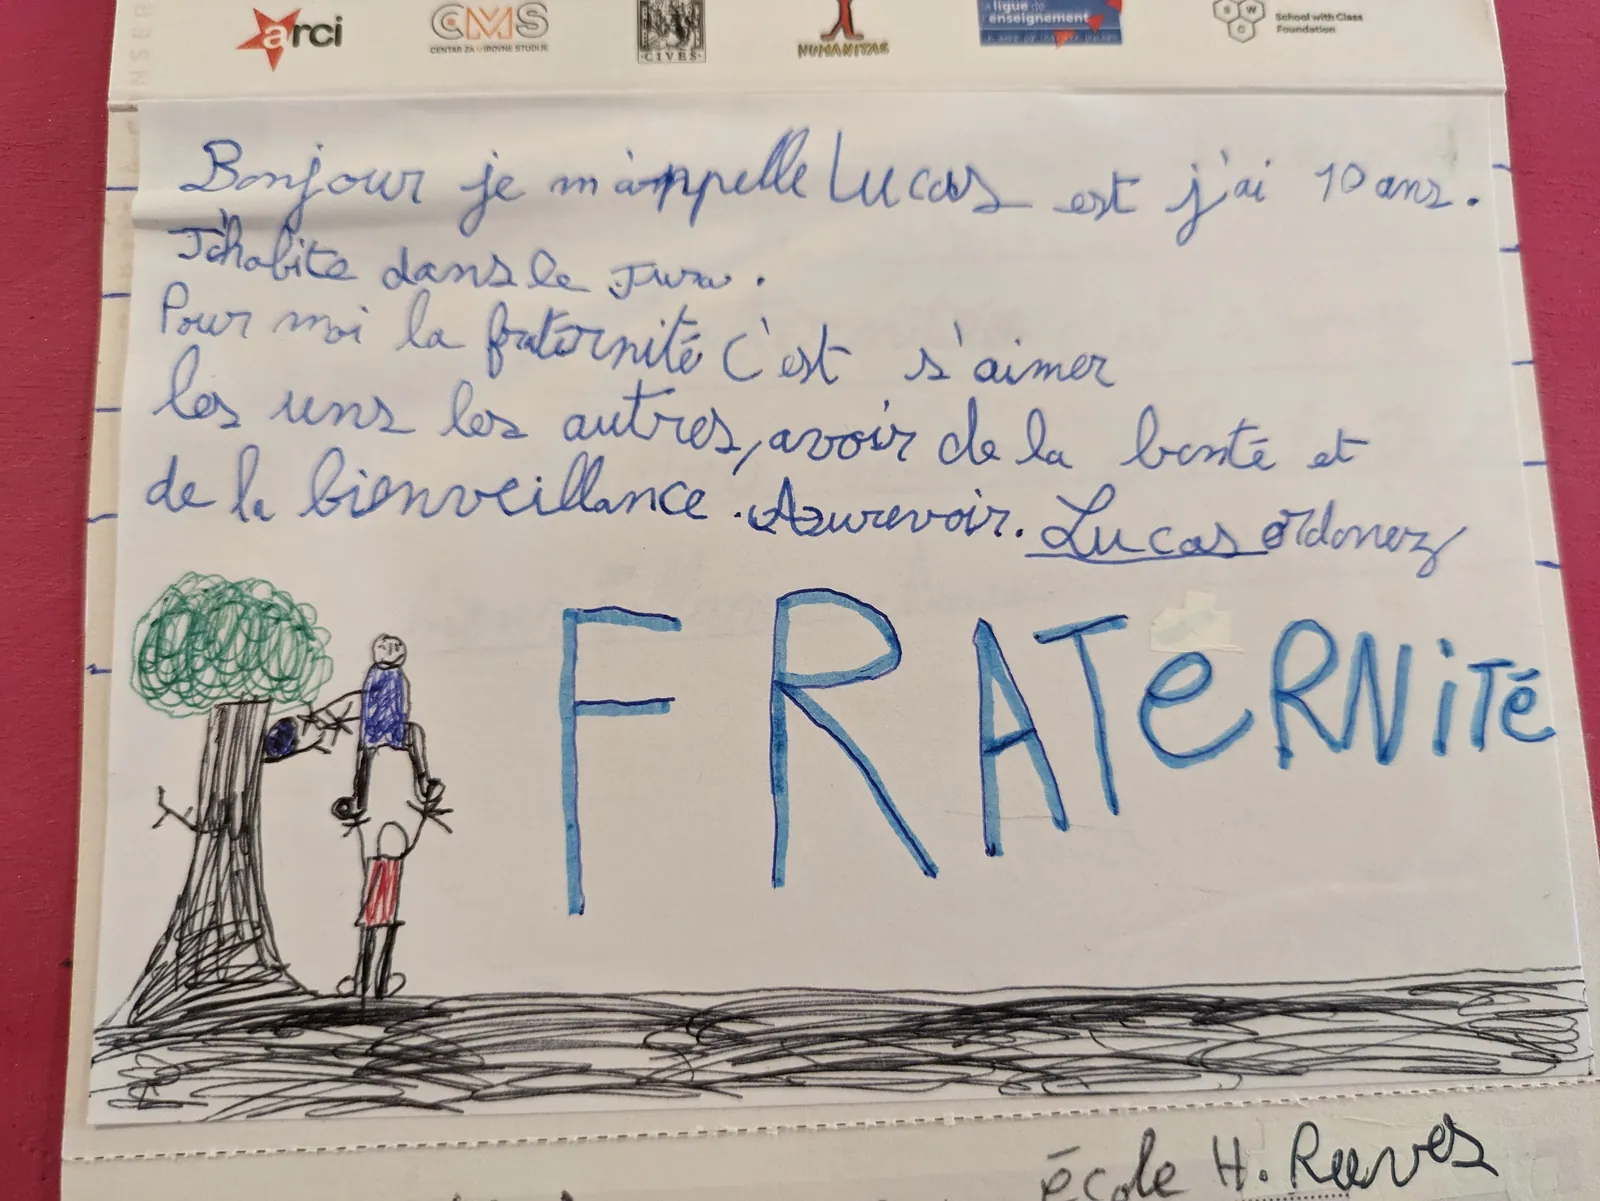 arci
CMS
CENTAR ZA MIROVNE STUDIJE
CIVES
HUMANITAS
la ligue de
l'enseignement
S W C
School with Class
Foundation
Bonjour je m'appelle Lucas est j'ai 10 ans.
J'habite dans le Jura.
Pour moi la fraternité c'est s'aimer
les uns les autres, avoir de la bonté et
de la bienveillance. Aurevoir. Lucas ordonez
FRATERNiTé
école H. Reeves